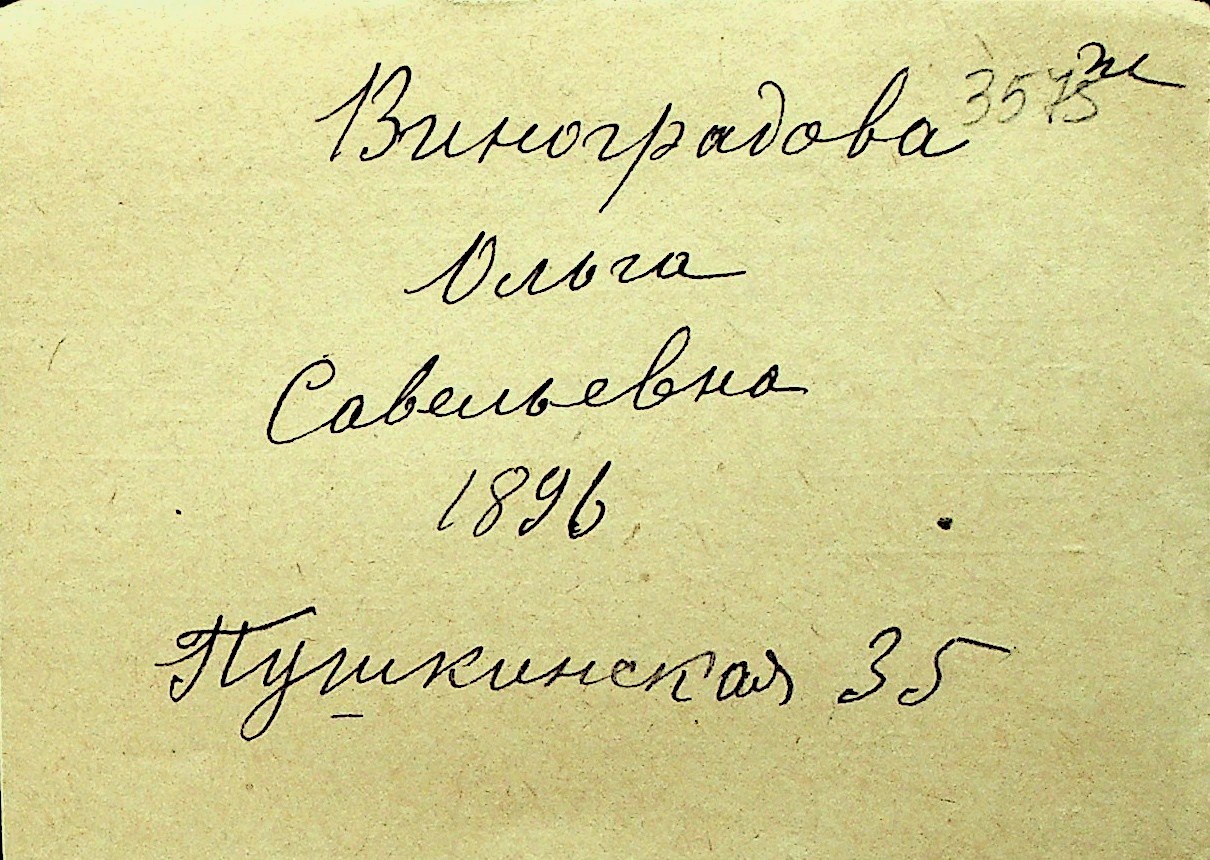 Виноградова 3575
Ольга
Савельевна
1896
Пушкинская 35